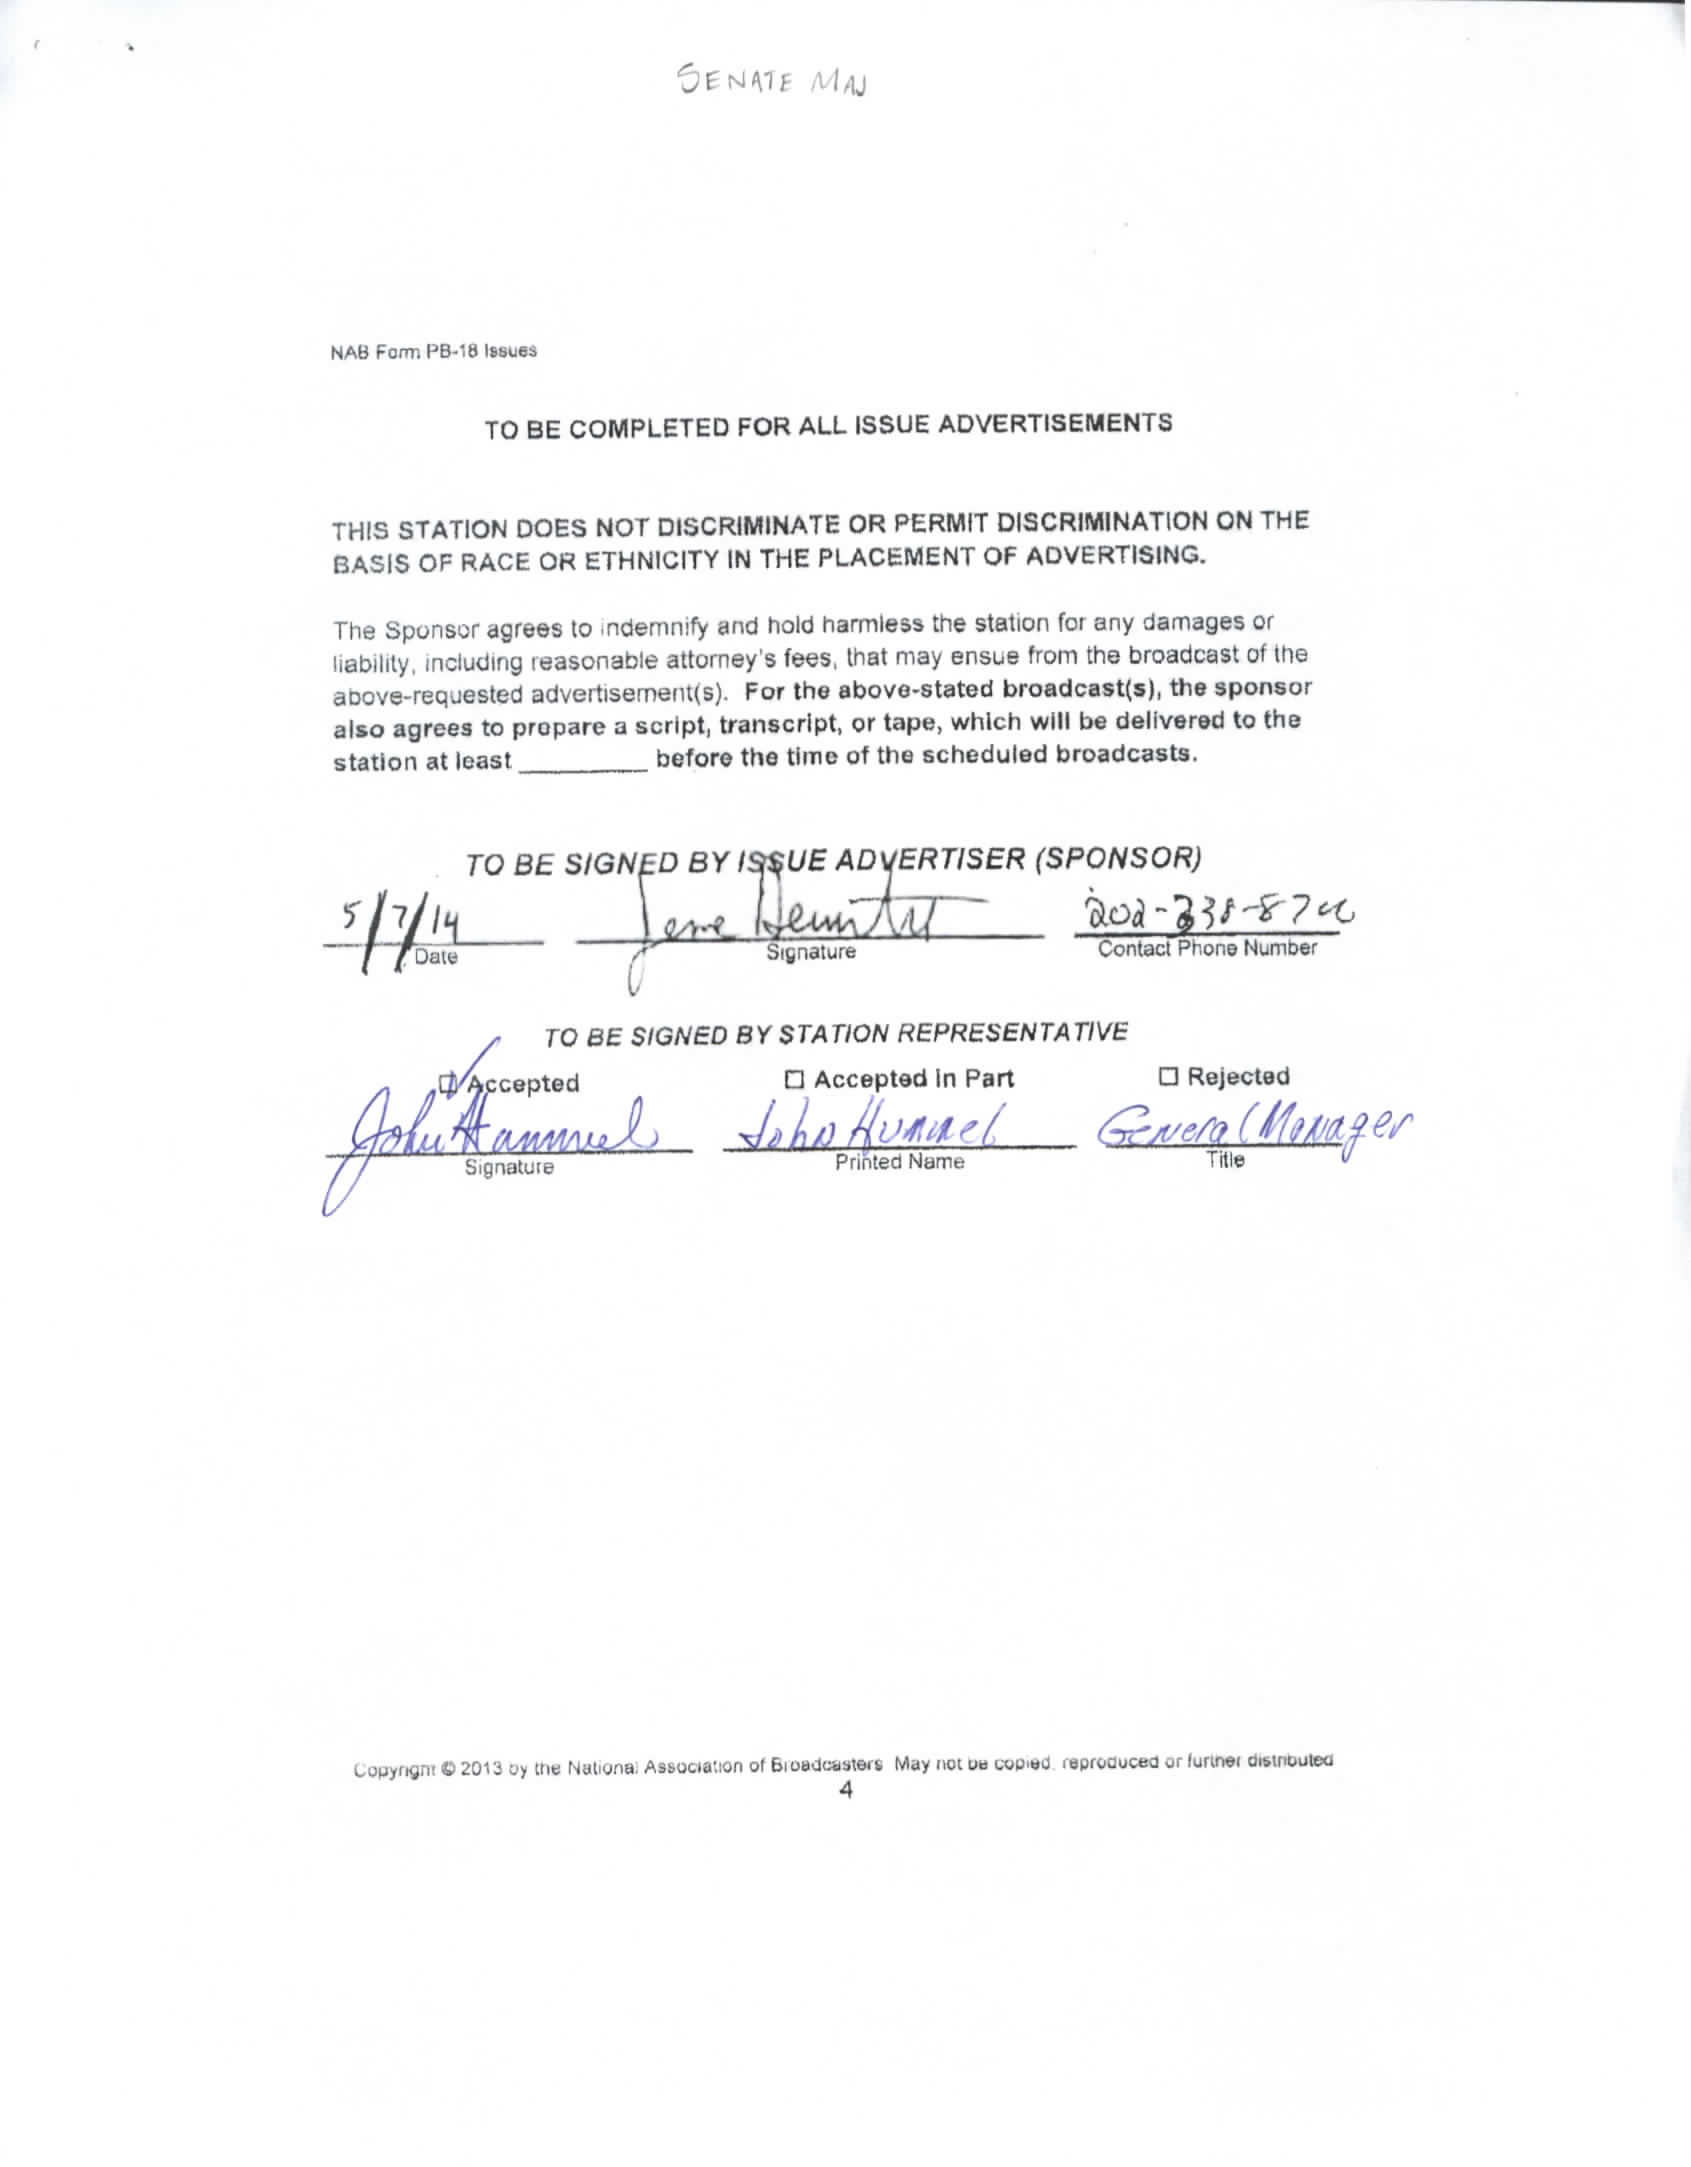 SENATE MAJ
NAB Form PB-18 Issues
TO BE COMPLETED FOR ALL ISSUE ADVERTISEMENTS
THIS STATION DOES NOT DISCRIMINATE OR PERMIT DISCRIMINATION ON THE
BASIS OF RACE OR ETHNICITY IN THE PLACEMENT OF ADVERTISING.
The Sponsor agrees to indemnify and hold harmless the station for any damages or
liability, including reasonable attorney's fees, that may ensue from the broadcast of the
above-requested advertisement(s). For the above-stated broadcast(s), the sponsor
also agrees to prepare a script, transcript, or tape, which will be delivered to the
station at least __________ before the time of the scheduled broadcasts.
TO BE SIGNED BY ISSUE ADVERTISER (SPONSOR)
5/7/14
Date Signature Contact Phone Number
TO BE SIGNED BY STATION REPRESENTATIVE
☑ Accepted ☐ Accepted in Part ☐ Rejected
John Hummel John Hummel General Manager
Signature Printed Name Title
Copyright © 2013 by the National Association of Broadcasters May not be copied, reproduced or further distributed
4